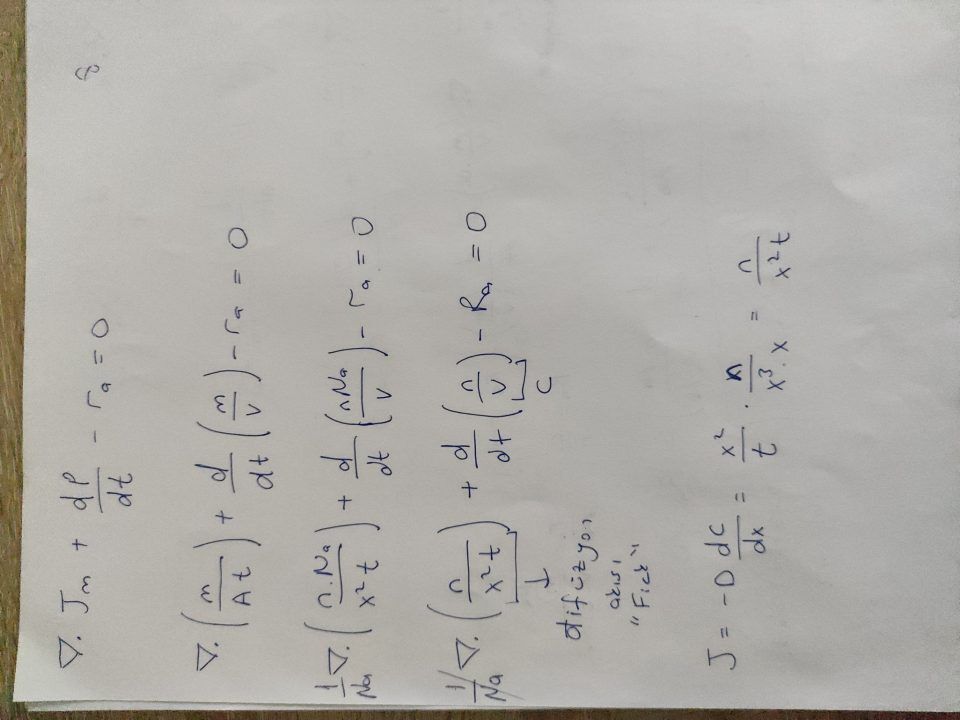 8
∇. Jm + dρ/dt - ra = 0
∇. (m/At) + d/dt (m/V) - ra = 0
1/Na ∇. (n.Na/x²t) + d/dt (nNa/V) - ra = 0
1/Na ∇. (n/x²t) + d/dt (n/V) - Ra = 0
J C
difüzyon
akısı
"Fick"
J = -D dC/dx = x²/t . n/x³.x = n/x²t